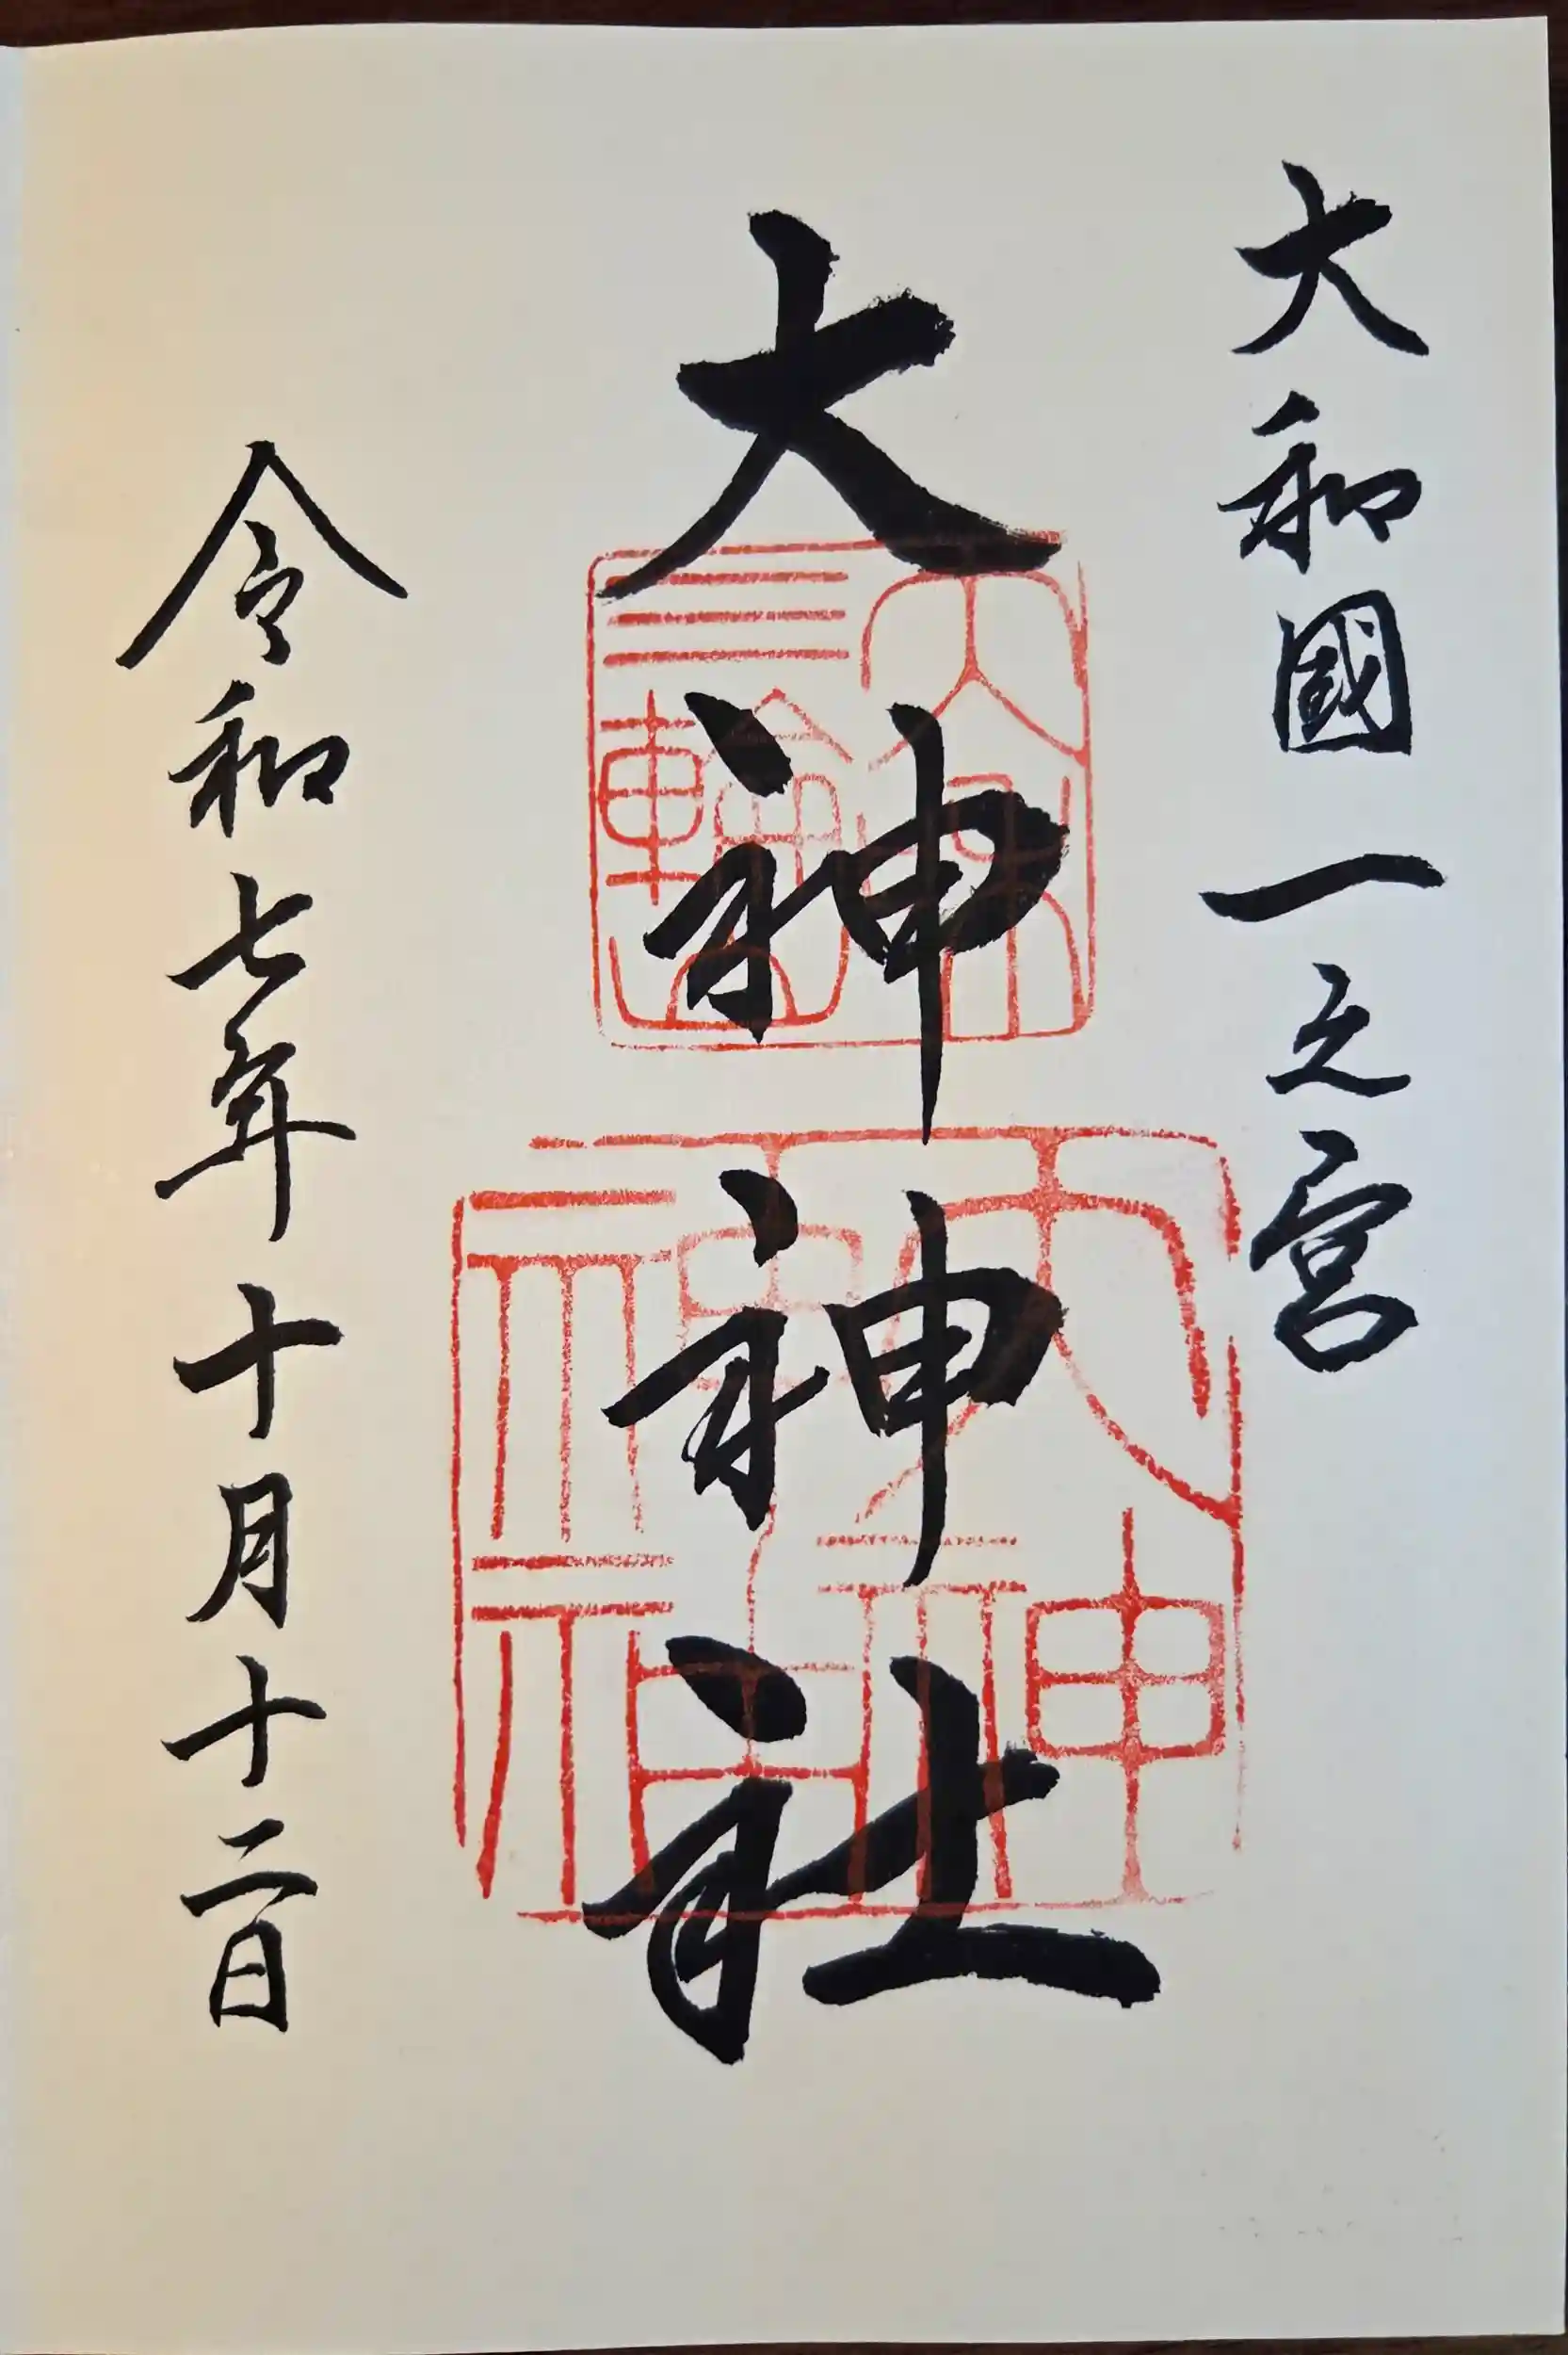 大和國一之宮
大神神社
令和七年十月十二日
大神
神社